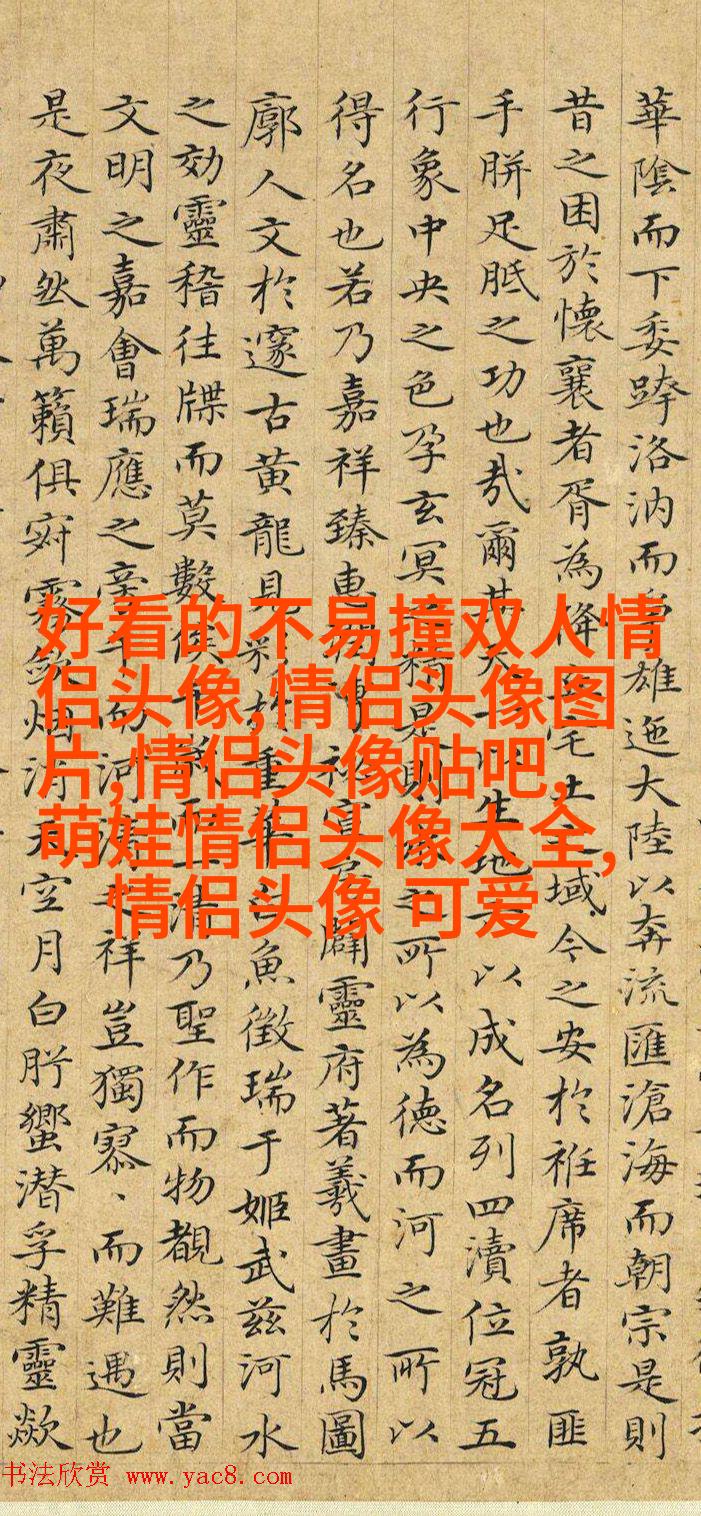 華陰而下委跨洛汭而雄迤大陸以奔流匯滄海而朝宗是則
昔之困於懷襄者胥為降宅土之域今之安於袵席者孰匪
手胼足胝之功也哉爾其天以生地以成名列四瀆位冠五
行象中央之色孕玄冥之精是則之所以為德而河之所以
得名也若乃嘉祥臻惠闢靈府著羲畫於馬圖
廓人文於邃古黃龍見於重華魚徵瑞于姬武茲河水
之効靈稽往牒而莫數俟而一清乃聖作而物覩然則當
文明之嘉會瑞應之河清之祥豈獨寥、而難遇也
是夜肅然萬籟俱寂霧斂烟消天空月白肸蠁潛孚精靈歘
好看的不易撞双人情
侣头像,情侣头像图
片,情侣头像贴吧,
萌娃情侣头像大全,
情侣头像 可爱
书法欣赏 www.yac8.com